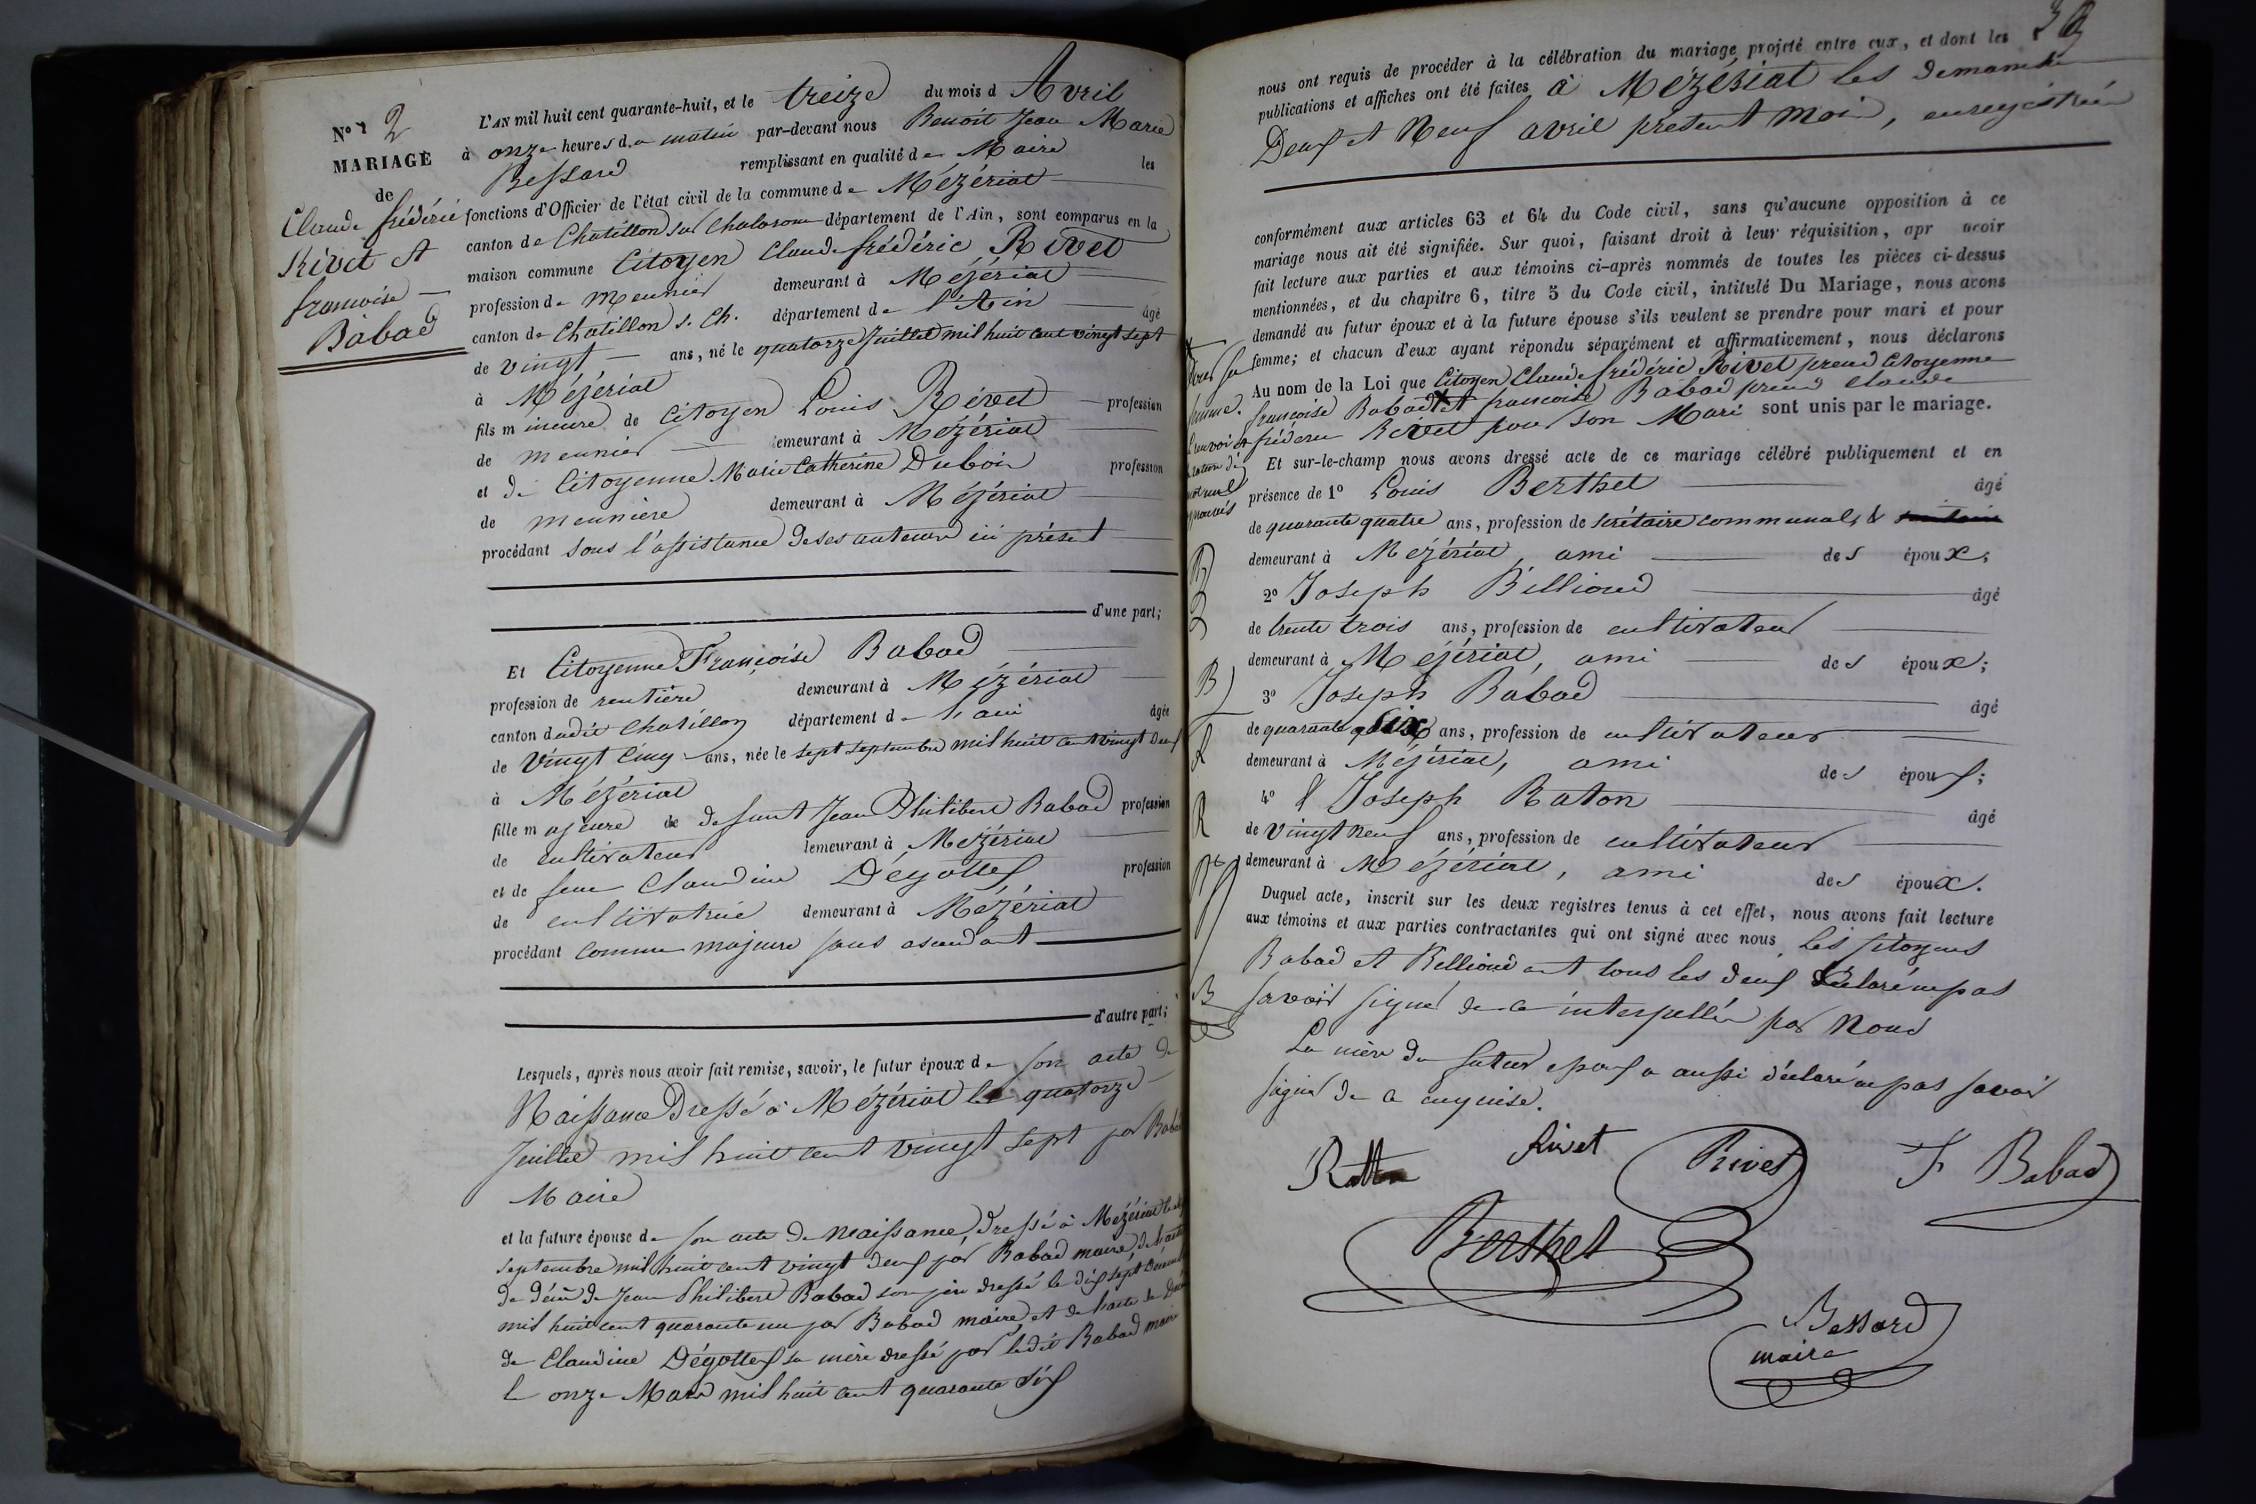 N° 2
MARIAGE
de
Claude frédéric
Rivet et
francoise
Babad
L'AN mil huit cent quarante-huit, et le treize du mois d Avril
à onze heures du matin par-devant nous Benoit Jean Marie
Bessard remplissant en qualité de Maire les
fonctions d'Officier de l'état civil de la commune de Mézériat
canton de Chatillon sur Chalaronne département de l'Ain, sont comparus en la
maison commune Citoyen Claude frédéric Rivet
profession de meunier demeurant à Mézériat
canton de Chatillon s. Ch. département de l'Ain âgé
de vingt ans, né le quatorze juillet mil huit cent vingt sept
à Mézériat
fils mineure de Citoyen Louis Rivet profession
de meunier demeurant à Mézériat
et de Citoyenne Marie Catherine Duboin profession
de meuniere demeurant à Mézériat
procédant sous l'assistance de ses auteurs ici présent
d'une part;
Et Citoyenne Françoise Babad
profession de rentière demeurant à Mézériat
canton dudit Chatillon département de l'ain âgée
de vingt cinq ans, née le sept septembre mil huit cent vingt deux
à Mézériat
fille majeure de defunt Jean Philibert Babad profession
de cultivateur demeurant à Mézériat
et de feue Claudine Dégottex profession
de cultivatrice demeurant à Mézériat
procédant comme majeure sans ascendant
d'autre part;
Lesquels, après nous avoir fait remise, savoir, le futur époux de son acte de
Naissance Dressé à Mézériat le quatorze
Juillet mil huit cent vingt sept par Babad
Maire
et la future épouse de son acte de Naissance, dressé à Mézériat le sept
septembre mil huit cent vingt deux par Babad maire, de l'acte
de décès de Jean Philibert Babad son père dressé le dix sept Décembre
mil huit cent quarante un par Babad maire et de l'acte de Décès
de Claudine Dégottex sa mère dressé par ledit Babad maire
le onze Mars mil huit cent quarante six
nous ont requis de procéder à la célébration du mariage projeté entre eux, et dont les
publications et affiches ont été faites à Mézériat les dimanches
Deux et Neuf avril présent mois, enregistrées
conformément aux articles 63 et 64 du Code civil, sans qu'aucune opposition à ce
mariage nous ait été signifiée. Sur quoi, faisant droit à leur réquisition, apr avoir
fait lecture aux parties et aux témoins ci-après nommés de toutes les pièces ci-dessus
mentionnées, et du chapitre 6, titre 5 du Code civil, intitulé Du Mariage, nous avons
demandé au futur époux et à la future épouse s'ils veulent se prendre pour mari et pour
femme; et chacun d'eux ayant répondu séparément et affirmativement, nous déclarons
Au nom de la Loi que Citoyen Claude frédéric Rivet prend Citoyenne
françoise Babad et francoise Babad prend Claude
frédéric Rivet pour son Mari sont unis par le mariage.
pour sa
femme.
Et sur-le-champ nous avons dressé acte de ce mariage célébré publiquement et en
présence de 1° Louis Berthet âgé
de quarante quatre ans, profession de secrétaire communal,
demeurant à Mézériat, ami des époux;
2° Joseph Billioud âgé
de trente trois ans, profession de cultivateur
demeurant à Mézériat, ami des époux;
3° Joseph Babad âgé
de quarante six ans, profession de cultivateur
demeurant à Mézériat, ami des époux;
4° & Joseph Raton âgé
de vingt neuf ans, profession de cultivateur
demeurant à Mézériat, ami des époux.
Duquel acte, inscrit sur les deux registres tenus à cet effet, nous avons fait lecture
aux témoins et aux parties contractantes qui ont signé avec nous, Les citoyens
Babad et Billioud ont tous les deux déclaré ne pas
savoir signer de ce interpellés par Nous
La mère du futur epoux a aussi déclaré ne pas savoir
signer de ce enquise.
Ratton Rivet Rivet F Babad
Berthet
Bessard
maire